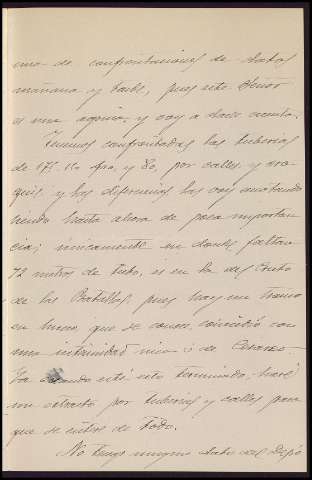 mo de confrontaciones de datos
mañana y tarde, pues este Señor
es una aguiva, y voy a darle cuenta.
Tenemos confrontadas las tuberias
de 175. 150. 100, y 80, por calles, y
y las diferencias las voy anotando
siendo hasta ahora de poca importan
cia; unicamente en donde faltan
72 metros de tubo, es en la del Conde
de las Patillas, pues hay un tramo
en hueco, que se conoce coincidió con
una intimidad mia ó de Cesareo.
Ya cuando esté esto terminado, haré
un extracto por tuberias y calles para
que se entere de todo.
No tengo ningun dato del Depó